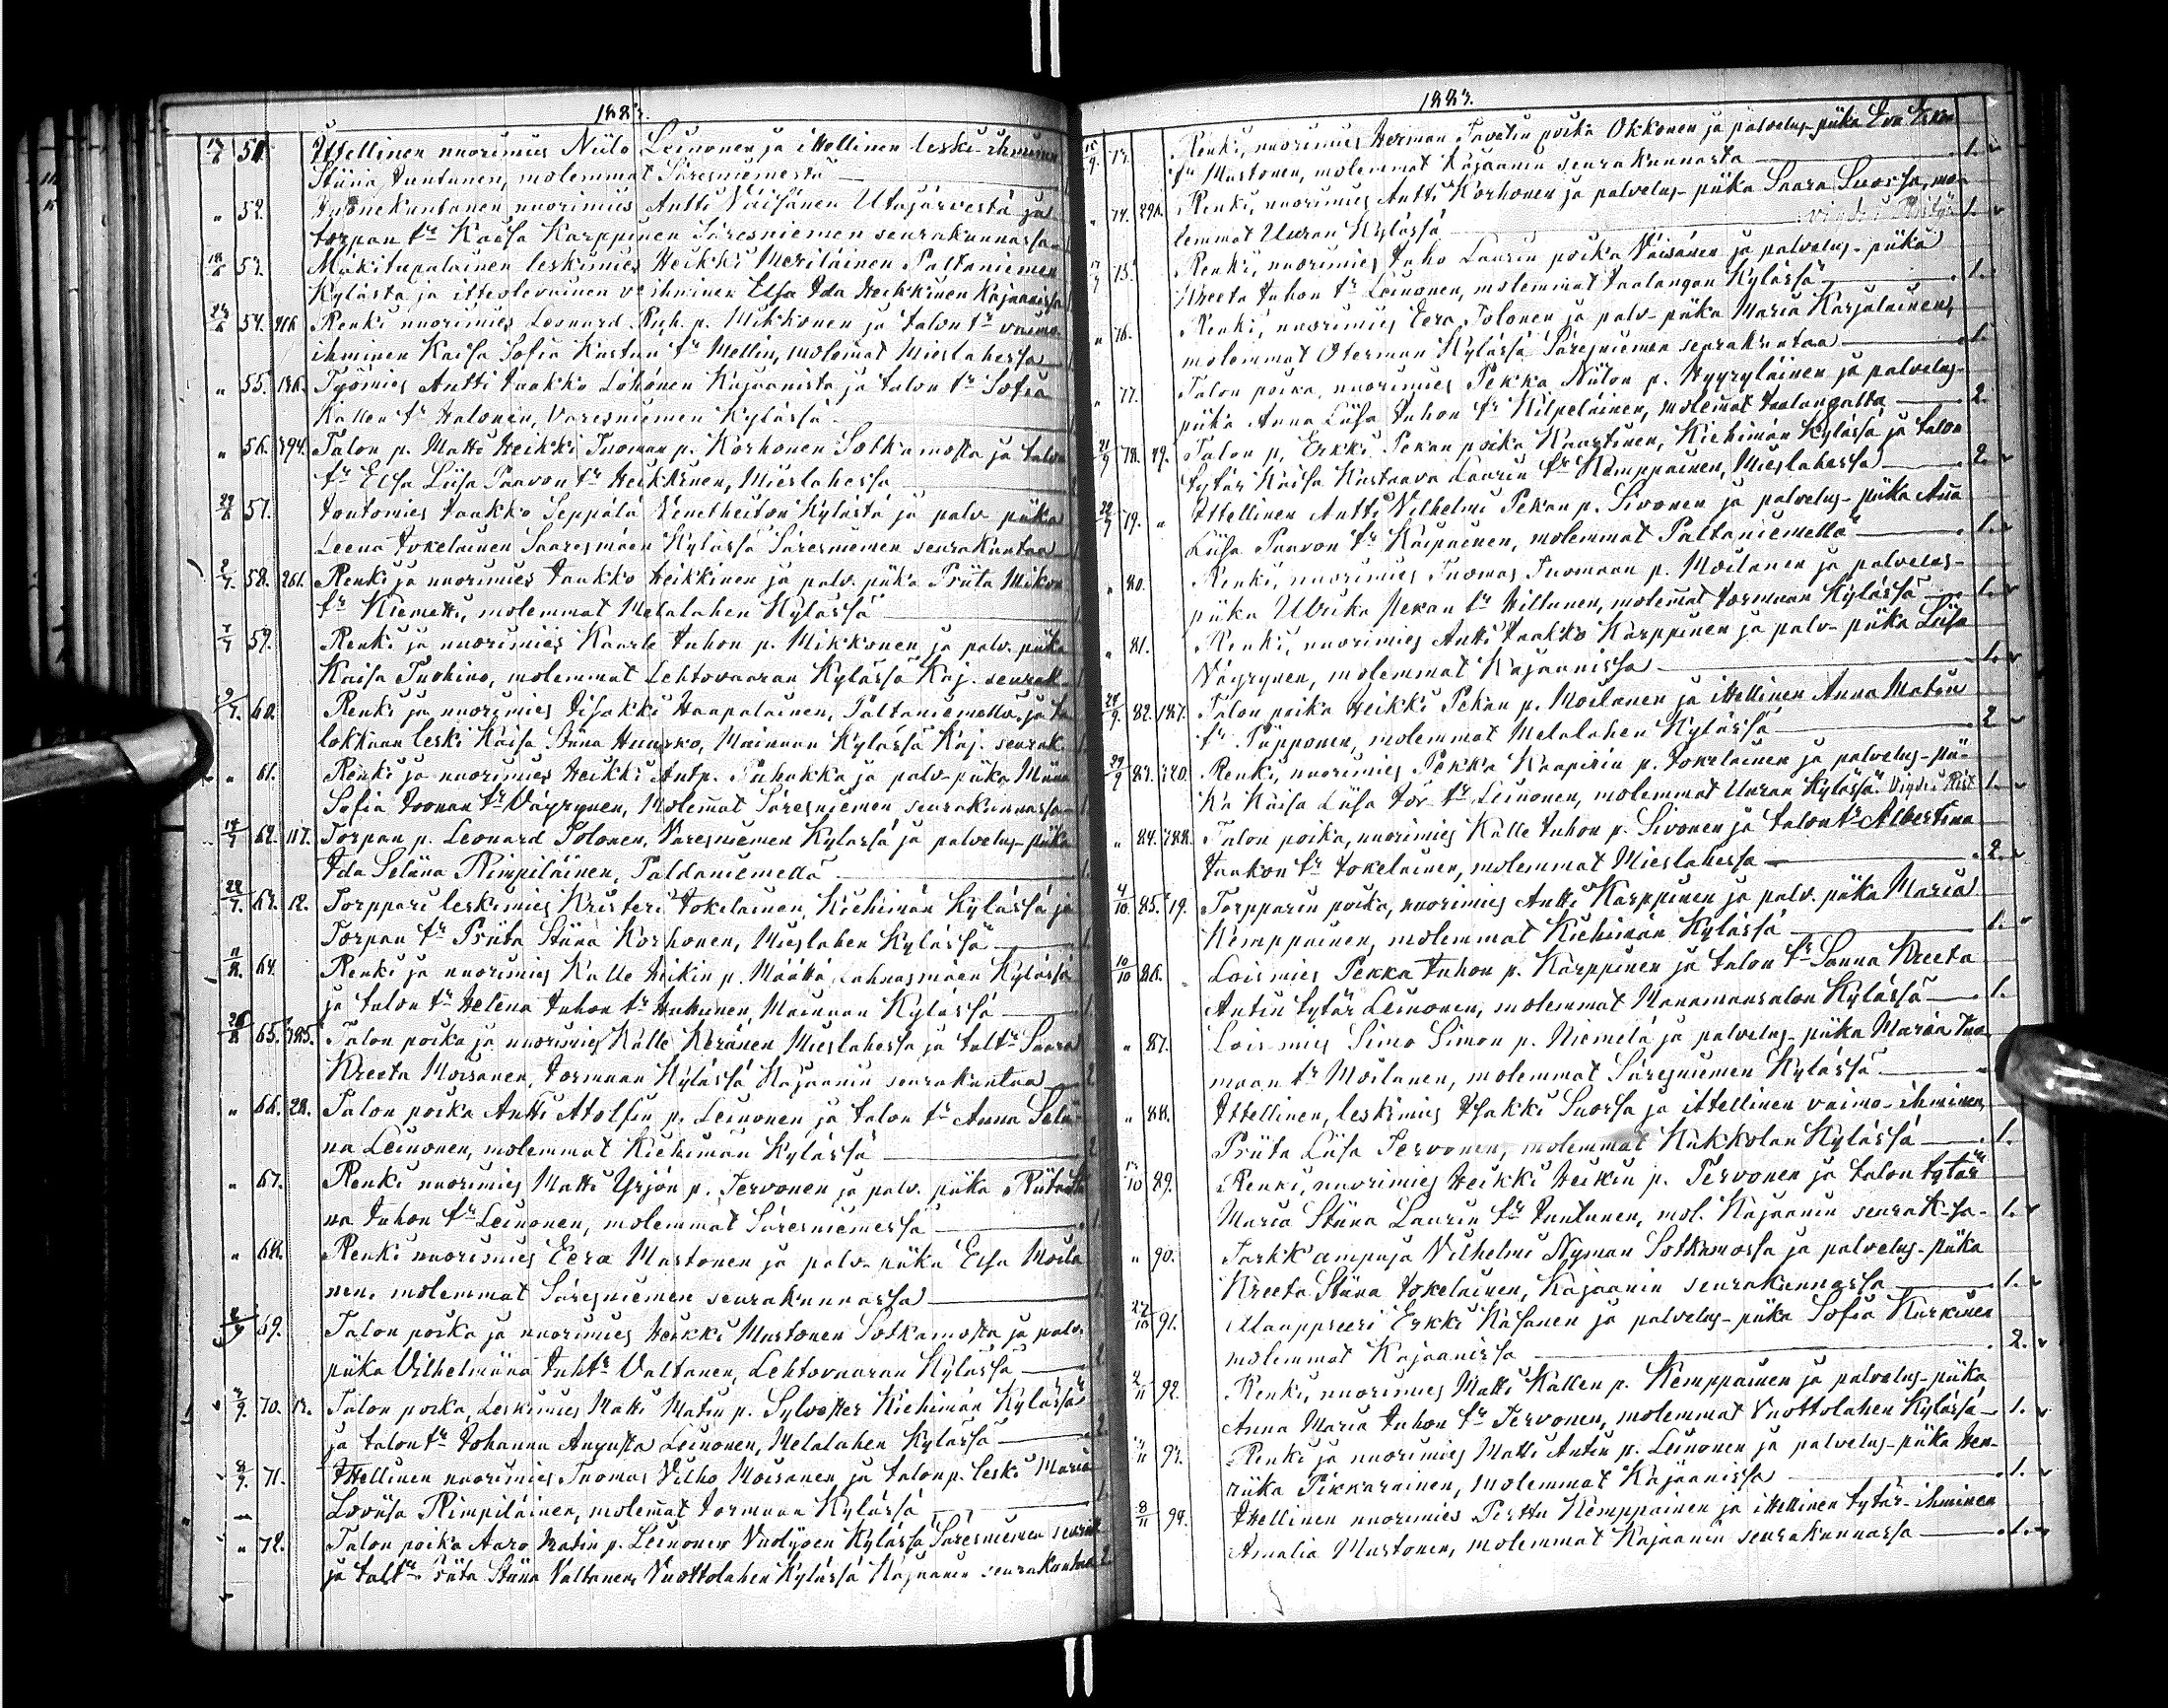 1883.
17/6 51. Ittellinen nuorimies Niilo Leinonen ja ittellinen leski-ihminen
Stiina Juntunen, molemmat Säresniemestä
" 52. nuorimies Antti Väisänen Utajärvestä ja
torpan tr Kaisa Karppinen Säresniemen seurakunnassa
18/6 53. Mäkitupalainen leskimies Heikki Meriläinen Paltaniemen
Kylästä ja itteolevainen v. ihminen Elsa Ida Heikkinen Kajaanissa
54. Renki nuorimies Leonard p. Mikkonen ja talon tr vaimo
ihminen Kaisa Sofia Kustun tr Mellin, molemat Mieslahessa
" 55. 186. Työmies Antti Jaakko Lohonen Kajaanista ja talon tr Sofia
Kallen tr Halonen, Varesniemen Kylässä
" 56. 394. Talon p. Matti Heikki Tuoman p. Korhonen Sotkamosta ja talon
tr Elsa Liisa Paavon tr Heikkinen, Mieslahessa
29/6 57. Joutomies Jaakko Seppälä Venetheiton Kylästä ja palv. piika
Leena Jokelainen Saaresmäen Kylässä Säresniemen seurakuntaa
2/7 58. 261. Renki ja nuorimies Jaakko Heikkinen ja palv. piika Priita Mikon
tr Kemetti, molemmat Melalahen Kylässä
7/7 59. Renki ja nuorimies Kaarle Juhon p. Mikkonen ja palv. piika
Kaisa Tuohino, molemmat Lehtovaaran Kylässä Kaj. seurak.
9/7. 60. Renki ja nuorimies Iisakki Haapalainen, Paltaniemellä, ja
lokkaan leski Kaisa Stiina Huusko, Mainuan Kylässä Kaj. seurak.
" 61. Renki ja nuorimies Heikki Antp. Puhakka ja palv-piika Miina
Sofia Joonan tr Väyrynen, Molemat Säresniemen seurakunnassa
14/7 62. 117. Torpan p. Leonard Polonen, Varesniemen Kylässä, ja palvelus-piika
Ida Seliina Rimpiläinen, Paldaniemellä 1.
22/7. 63. 12. Torppari leskimies Kristeri Jokelainen, Kiehimän Kylässä ja
Torpan tr Priita Stiina Korhonen, Mieslahen Kylässä 1.
11/8. 64. Renki ja nuorimies Kalle Heikin p. Määttä, Lahnasmäen Kylässä
ja talon tr Helena Juhon tr Huhunen, Mainuan Kylässä 1.
26/8 65. 385. Talon poika ja nuorimies Kalle Keränen Mieslahessa ja tal tr Saara
Kreeta Moisanen, Jormuan Kylässä Kajaanin seurakuntaa 2
" 66. 28. Talon poika Antti Atolfin p. Leinonen ja talon tr Anna Selii-
na Leinonen, molemmat Kiehimän Kylässä 2
" 67. Renki nuorimies Matti Yrjön p. Tervonen ja palv. piika
na Juhon tr Leinonen, molemmat Säresniemessä 1.
" 68. Renki nuorimies Eera Mustonen ja palv. piika Elsa Moila
nen, molemmat Säresniemen seurakunnassa 1.
69. Talon poika ja nuorimies Heikki Mustonen Sotkamosta ja palv.
piika Vilhelmiina Juh tr Valtanen, Lehtovaaran Kylässä 2.
70. 13. Talon poika, Leskimies Matti Matin p. Sylvester Kiehimän Kylässä
ja talon tr Johanna Augusta Leinonen, Melalahen Kylässä 2.
8/9. 71. Ittellinen nuorimies Tuomas Vilho Moisanen ja talon p. leski Maria
Loviisa Rimpiläinen, molemat Jormuan Kylässä 1.
" 72. Talon poika Aaro Matin p. Leinonen Vuolijoen Kylässä Säresniemen seurak
ja tal tr Priita Stiina Valtanen, Vuottolahen Kylässä Kajaanin seurakuntaa 2.
1883.
15/9. 73. Renki, nuorimies Herman Tavetin poika Okkonen ja palvelus-piika Eva
tr Mustonen, molemmat Kajaanin seurakunnasta 1.
" 74. 290. Renki, nuorimies Antti Korhonen ja palvelus-piika Saara Suorsa, mo-
lemmat Uuran Kylässä 1.
75. Renki, nuorimies Juho Laurin poika Väisänen ja palvelus-piika
Kreeta Juhon tr Leinonen, molemmat Jaalangan Kylässä 1.
" 76. Renki, nuorimies Eera Tolonen ja palv-piika Maria Karjalainen,
molemmat Oterman Kylässä Säresniemen seurakuntaa 1.
" 77. Talon poika, nuorimies Pekka Niilon p. Hyyryläinen ja palvelus-
piika Anna Liisa Juhon tr Kilpeläinen, molemat Jaalangalta 2.
21/9 78. 49. Talon p. Erkki Pekan poika Kaartinen, Kiehimän Kylässä ja talon
tytär Kaisa Kustaava Laurin tr Kemppainen, Mieslahessa 2.
79. " Ittellinen Antti Vilhelmi Pekan p. Sivonen ja palvelus-piika Anna
Liisa Paavon tr Kaipainen, molemmat Paltaniemellä 1.
" 80. Renki, nuorimies Tuomas Tuomaan p. Moilanen ja palvelus-
piika Ulrika Pekan tr Hiltunen, molemat Jormuan Kylässä 1.
" 81. Renki, nuorimies Antti Jaakko Karppinen ja palv-piika Liisa
Väyrynen, molemmat Kajaanissa 1.
82. 187. Talon poika Heikki Pekan p. Moilanen ja ittellinen Anna Matin
tr Piipponen, molemmat Melalahen Kylässä 2
29/9 83. 320. Renki, nuorimies Pekka Kaapirin p. Jokelainen ja palvelus-pii-
ka Kaisa Liisa tr Leinonen, molemmat Uuran Kylässä. 1.
" 84. 388. Talon poika, nuorimies Kalle Juhon p. Sivonen ja talon tr Albertina
Jaakon tr Jokelainen, molemmat Mieslahessa 2.
4/10. 85. 19. Torpparin poika, nuorimies Antti Karppinen ja palv. piika Maria
Kemppainen, molemmat Kiehimän Kylässä 1.
10/10 86. Loismies Pekka Juhon p. Karppinen ja talon tr Sanna Kreeta
Antin tytär Leinonen, molemmat Manamansalon Kylässä 1.
" 87. Loismies Simo Simon p. Niemelä ja palvelus-piika Maria Tuo-
maan tr Moilanen, molemmat Säresniemen Kylässä
" 88. Ittellinen, leskimies Iisakki Suorsa ja ittellinen vaimo-ihminen,
Priita Liisa Tervonen, molemmat Kukkolan Kylässä 1.
89. Renki, nuorimies Heikki Heikin p. Tervonen ja talon tytär
Maria Stiina Laurin tr Juntunen, mol. Kajaanin seurak-sa 1.
" 90. Tarkk'ampuja Vilhelmi Nyman Sotkamossa ja palvelus-piika
Kreeta Stiina Jokelainen, Kajaanin seurakunnassa 1.
91. Maapreeri Erkki Käsänen ja palvelus-piika Sofia Kurkinen
molemmat Kajaanissa 2.
2/11 92. Renki, nuorimies Matti Kallen p. Kemppainen ja palvelus-piika
Anna Maria Juhon tr Tervonen, molemmat Vuottolahen Kylässä 1.
93. Renki ja nuorimies Matti Antin p. Leinonen ja palvelus-piika Hen-
riika Pikkarainen, molemmat Kajaanissa 1.
8/11 94. Ittellinen nuorimies Perttu Kemppainen ja ittellinen tytär-ihminen
Amalia Mustonen, molemmat Kajaanin seurakunnassa 1.